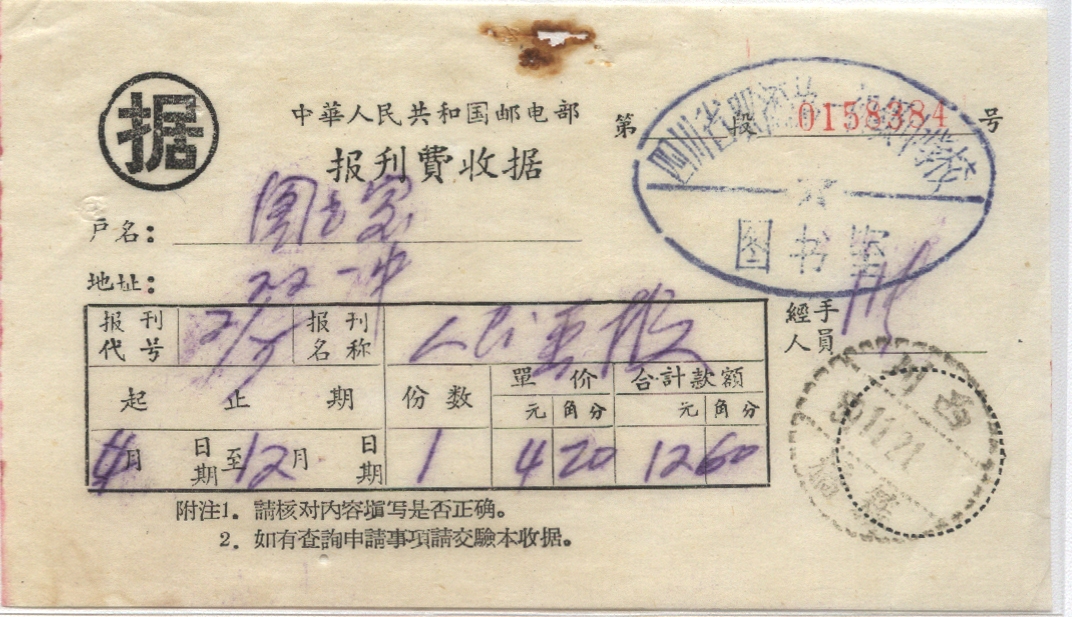 据
中華人民共和国邮电部
第 段 0158384 号
报刊費收据
图书室
户名：图书室
地址：
經手人員
报刊代号 2/5 报刊名称 人民画报
起止期 份数 單价 合計款額
元 角分 元 角分
4月 日期至12月 日期 1 4 20 12 60
附注1．請核对內容塡写是否正确。
2．如有查詢申請事項請交驗本收据。